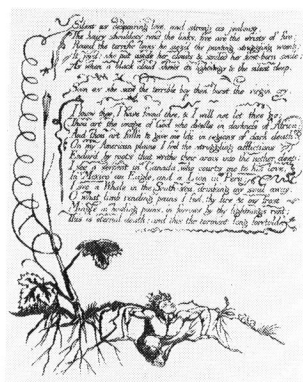 Silent as despairing love, and strong as jealousy,
The hairy shoulders rend the links, free are the wrists of fire;
Round the terrific loins he siez'd the panting struggling womb;
It joy'd: she put aside her clouds & smiled her first-born smile;
As when a black cloud shews its lightnings to the silent deep.
Soon as she saw the terrible boy then burst the virgin cry.
I know thee, I have found thee, & I will not let thee go;
Thou art the image of God who dwells in darkness of Africa;
And thou art fall'n to give me life in regions of dark death.
On my American plains I feel the struggling afflictions
Endur'd by roots that writhe their arms into the nether deep:
I see a serpent in Canada, who courts me to his love;
In Mexico an Eagle, and a Lion in Peru;
I see a Whale in the South-sea, drinking my soul away.
O what limb rending pains I feel, thy fire & my frost
Mingle in howling pains, in furrows by thy lightnings rent;
This is eternal death; and this the torment long foretold.